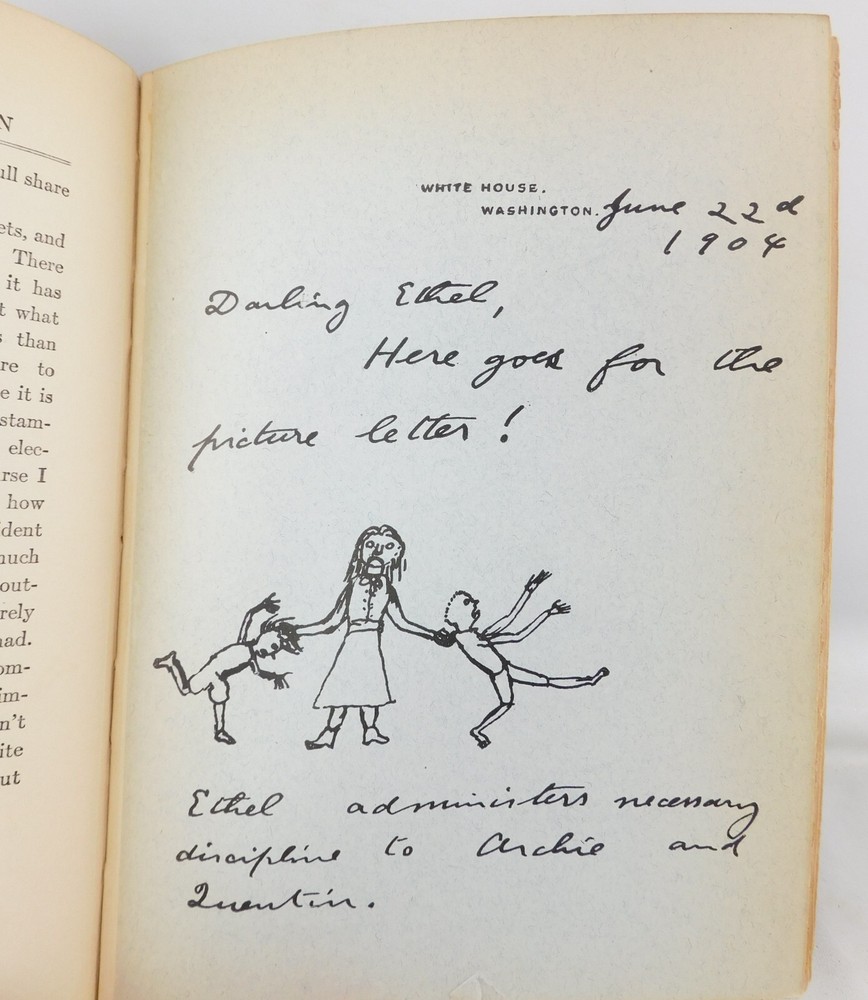 N
ull share
ets, and
There
it has
t what
s than
re to
e it is
stam-
elec-
rse I
how
ident
much
out-
rely
had.
om-
im-
n't
ite
ut
WHITE HOUSE.
WASHINGTON. June 22d
1904
Darling Ethel,
Here goes for the
picture letter!
Ethel administers necessary
discipline to Archie and
Quentin.